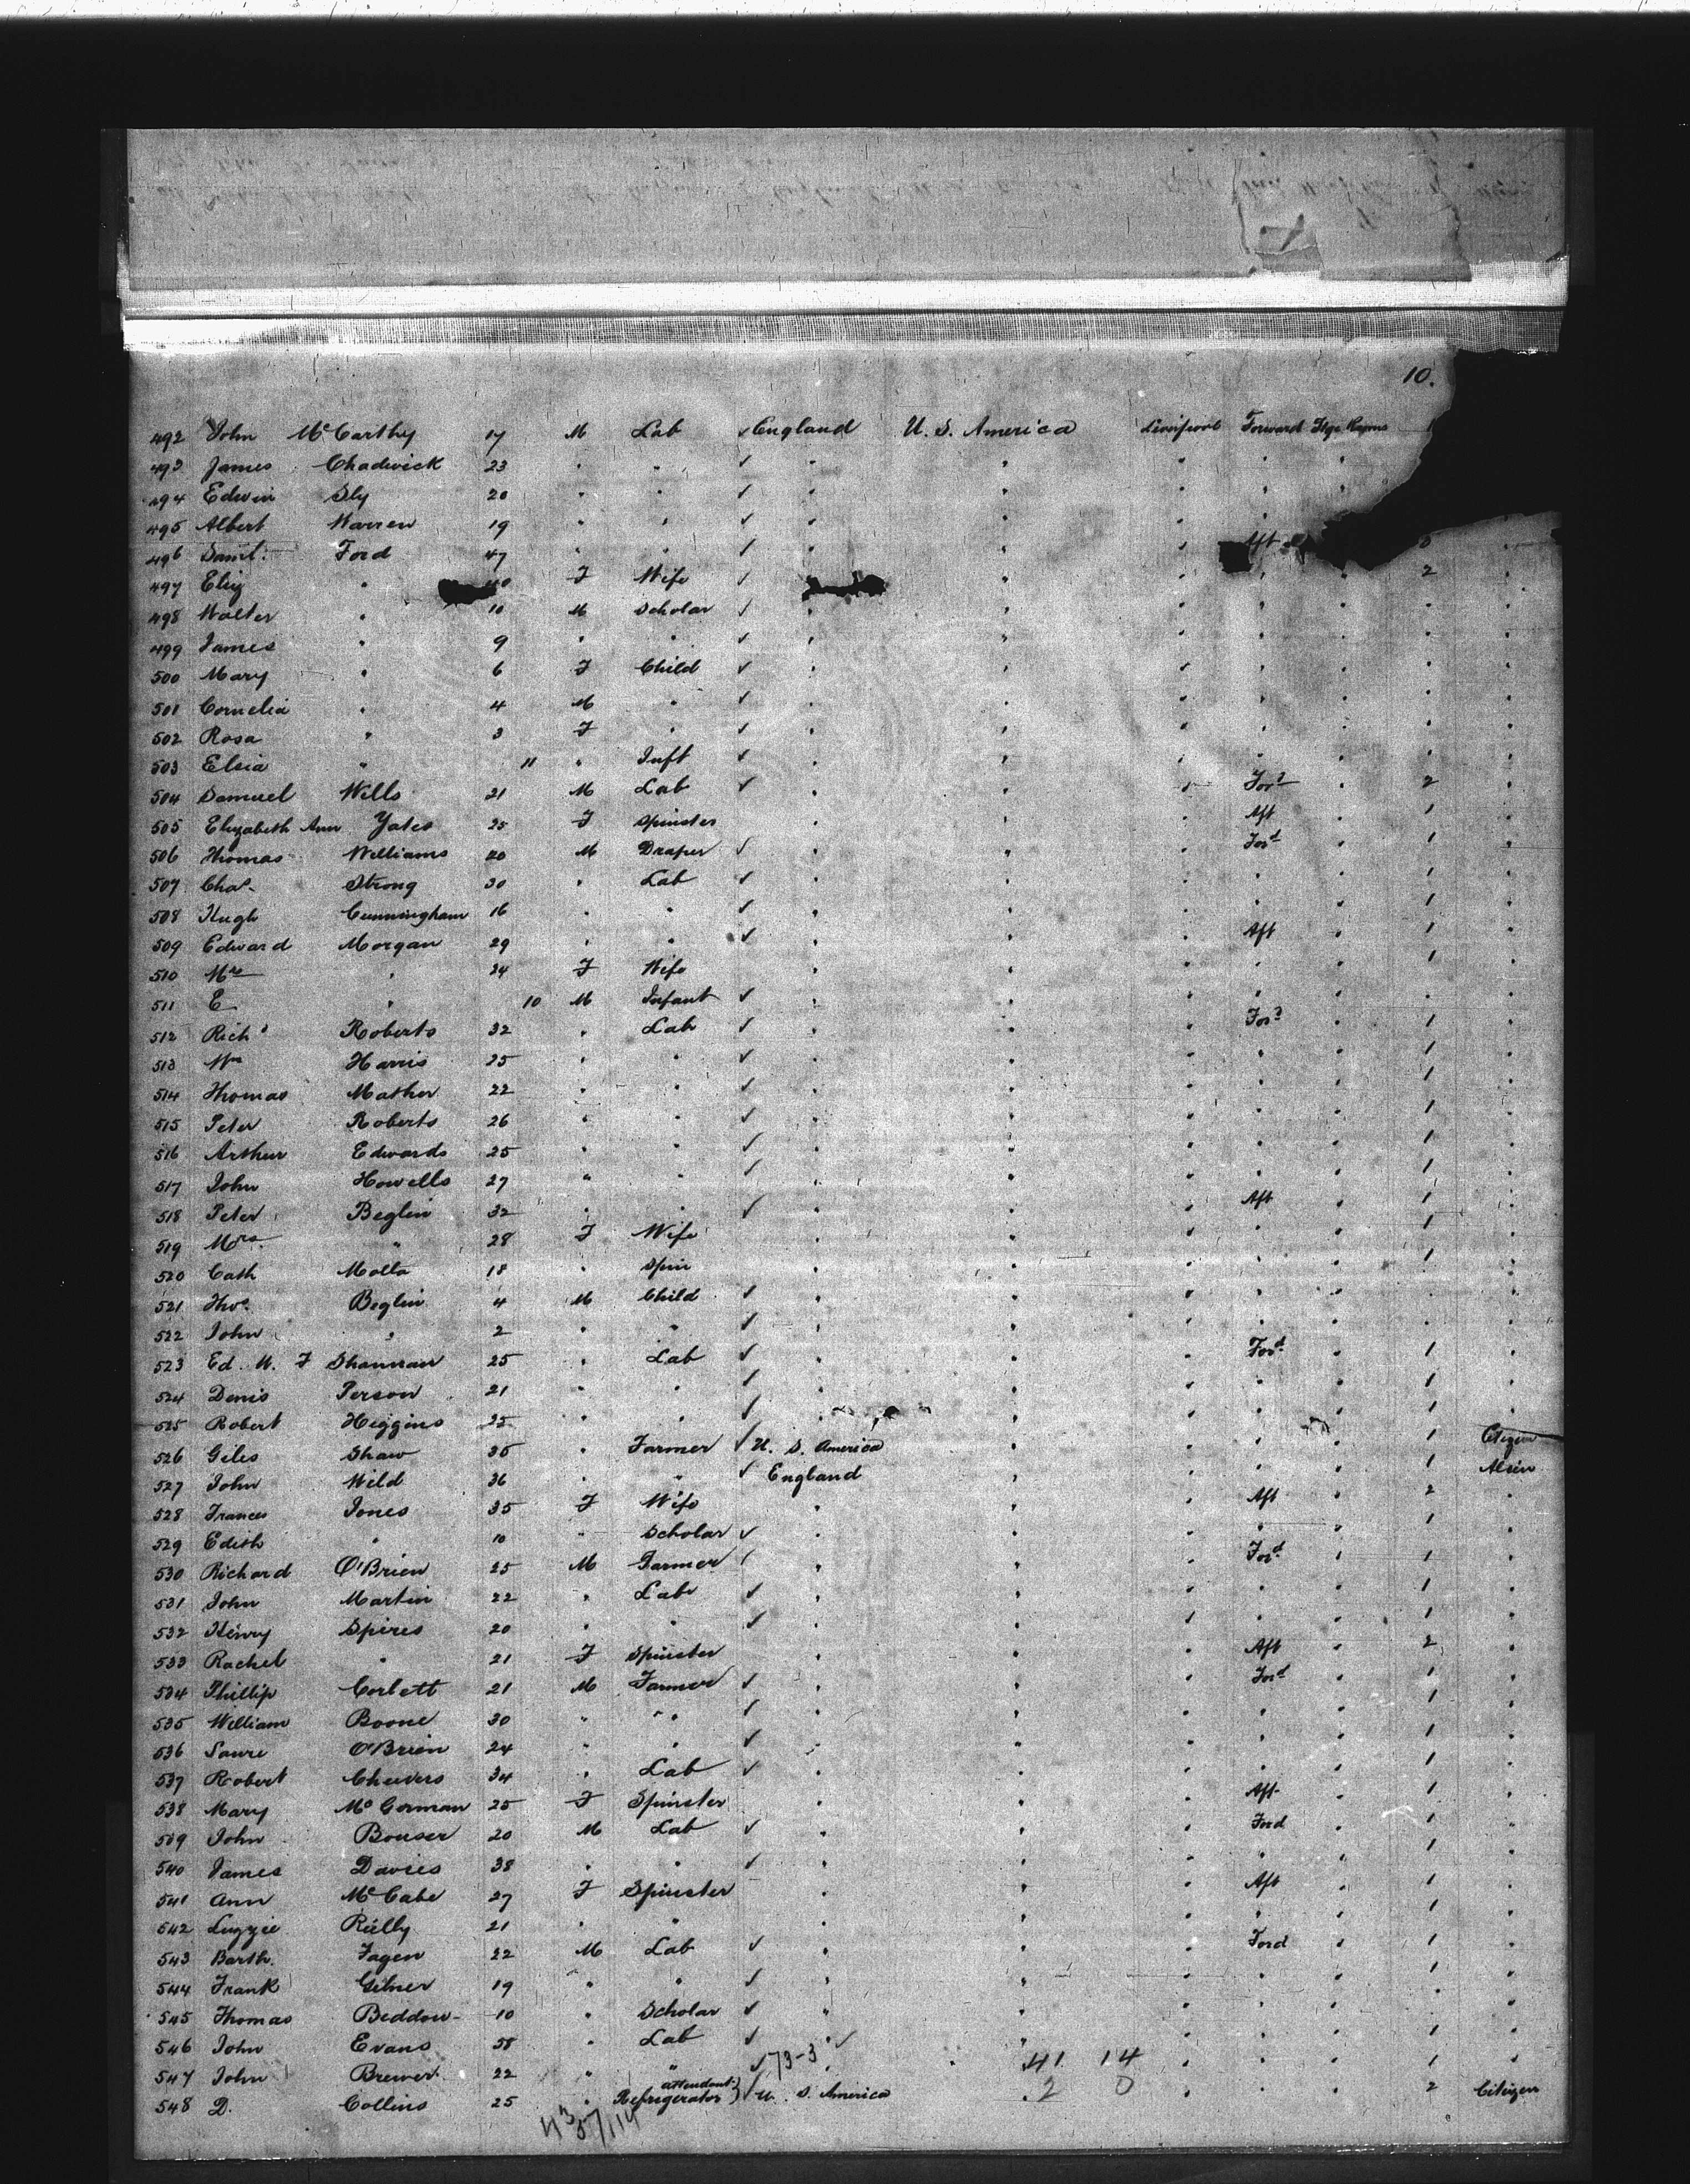 10.
492 John McCarthy 17 M Lab ✓ England U. S. America Liverpool Forward Stge
493 James Chadwick 23 " " ✓ " " " " "
494 Edwin Sly 20 " " ✓ " " " " "
495 Albert Warren 19 " " ✓ " " " "
496 Saml. Ford 47 " " ✓ " " Aft
497 Eliz " F Wife ✓ " " " " 2 "
498 Walter " 10 M Scholar ✓ " " " " " " "
499 James " 9 " " ✓ " " " " " " "
500 Mary " 6 F Child ✓ " " " " " " "
501 Cornelia " 4 M " ✓ " " " " " " "
502 Rosa " 3 F " ✓ " " " " " " "
503 Elsia " 11 " Inft ✓ " " " " " " "
504 Samuel Wills 21 M Lab ✓ " " " Ford " 2 "
505 Elizabeth Ann Yates 25 F Spinster " " " Aft " 1 "
506 Thomas Williams 20 M Draper ✓ " " " Ford " 1 "
507 Chas. Strong 30 " Lab ✓ " " " " " 1 "
508 Hugh Cunningham 16 " " ✓ " " " " " 1 "
509 Edward Morgan 29 " " ✓ " " " Aft " 1 "
510 Mrs " 24 F Wife " " " " " 1 "
511 E " 10 M Infant ✓ " " " " " " "
512 Richd Roberts 32 " Lab ✓ " " " Ford " 1 "
513 Wm Harris 25 " " ✓ " " " " " 1 "
514 Thomas Mather 22 " " ✓ " " " " " 1 "
515 Peter Roberts 26 " " ✓ " " " " " 1 "
516 Arthur Edwards 25 " " ✓ " " " " " 1 "
517 John Howells 27 " " ✓ " " " " " 1 "
518 Peter Beglin 32 " " ✓ " " " Aft " 1 "
519 Mrs. " 28 F Wife " " " " " 1 "
520 Cath Molla 18 " Spin " " " " " 1 "
521 Thos. Beglin 4 M Child ✓ " " " " " " "
522 John " 2 " " ✓ " " " " " " "
523 Ed. W. F Shannan 25 " Lab ✓ " " " Ford " 1 "
524 Denis Person 21 " " ✓ " " " " " 1 "
525 Robert Higgins 25 " " ✓ " " " " 1 "
526 Giles Shaw 35 " Farmer ✓ U. S. America " " " " 1 Citizen
527 John Wild 36 " " ✓ England " " " " 1 Alien
528 Frances Jones 35 F Wife " " " Aft " 2 "
529 Edith " 10 " Scholar ✓ " " " " " 1 "
530 Richard O'Brien 25 M Farmer ✓ " " " Ford " 1 "
531 John Martin 22 " Lab ✓ " " " " " 1 "
532 Henry Spires 20 " " ✓ " " " " " 1 "
533 Rachel " 21 F Spinster " " " Aft " 2 "
534 Phillip Corbett 21 M Farmer ✓ " " " Ford " 1 "
535 William Boone 30 " " ✓ " " " " " 1 "
536 O'Brien 24 " " ✓ " " " " " 1 "
537 Robert Cheevers 34 " Lab ✓ " " " " " 1 "
538 Mary McGorman 25 F Spinster " " " Aft " 1 "
539 John Bouser 20 M Lab ✓ " " " Ford " 1 "
540 James Davies 38 " " ✓ " " " " " 1 "
541 Ann McCabe 27 F Spinster " " " Aft " 1 "
542 Luzzie Reilly 21 " " " " " " " 1 "
543 Barth. Fagen 22 M Lab ✓ " " " Ford " 1 "
544 Frank Gilner 19 " " ✓ " " " " " 1 "
545 Thomas Beddow 10 " Scholar ✓ " " " " " " "
546 John Evans 58 " Lab ✓ " ✓ " " " " 1 "
547 John Brewer 22 " " ✓ 73-3 " 41 14 " " " 1 "
548 D. Collins 25 " Refrigerator attendant } ✓ U. S. America 2 0 " " " 2 Citizen